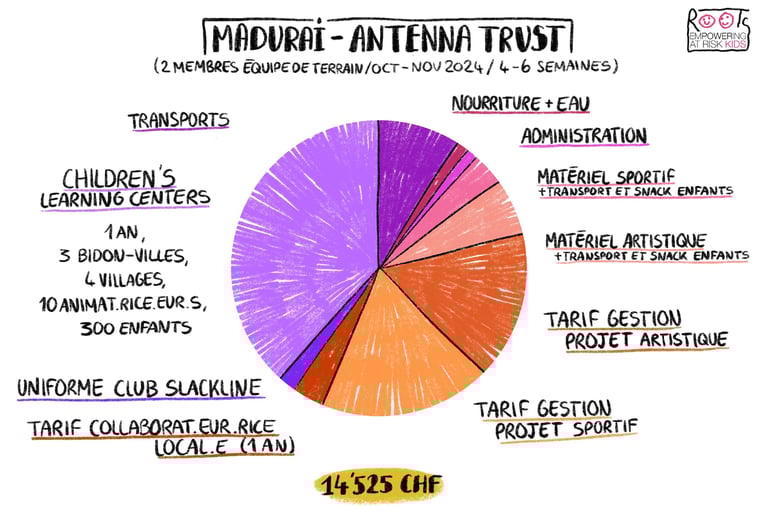 MADURAI - ANTENNA TRUST
(2 MEMBRES ÉQUIPE DE TERRAIN/OCT-NOV 2024 / 4-6 SEMAINES)
ROOTS
EMPOWERING
AT RISK KIDS
TRANSPORTS
CHILDREN'S
LEARNING CENTERS
1 AN,
3 BIDON-VILLES,
4 VILLAGES,
10 ANIMAT.RICE.EUR.S,
300 ENFANTS
UNIFORME CLUB SLACKLINE
TARIF COLLABORAT.EUR.RICE
LOCAL.E (1 AN)
NOURRITURE + EAU
ADMINISTRATION
MATÉRIEL SPORTIF
+TRANSPORT ET SNACK ENFANTS
MATÉRIEL ARTISTIQUE
+TRANSPORT ET SNACK ENFANTS
TARIF GESTION
PROJET ARTISTIQUE
TARIF GESTION
PROJET SPORTIF
14'525 CHF